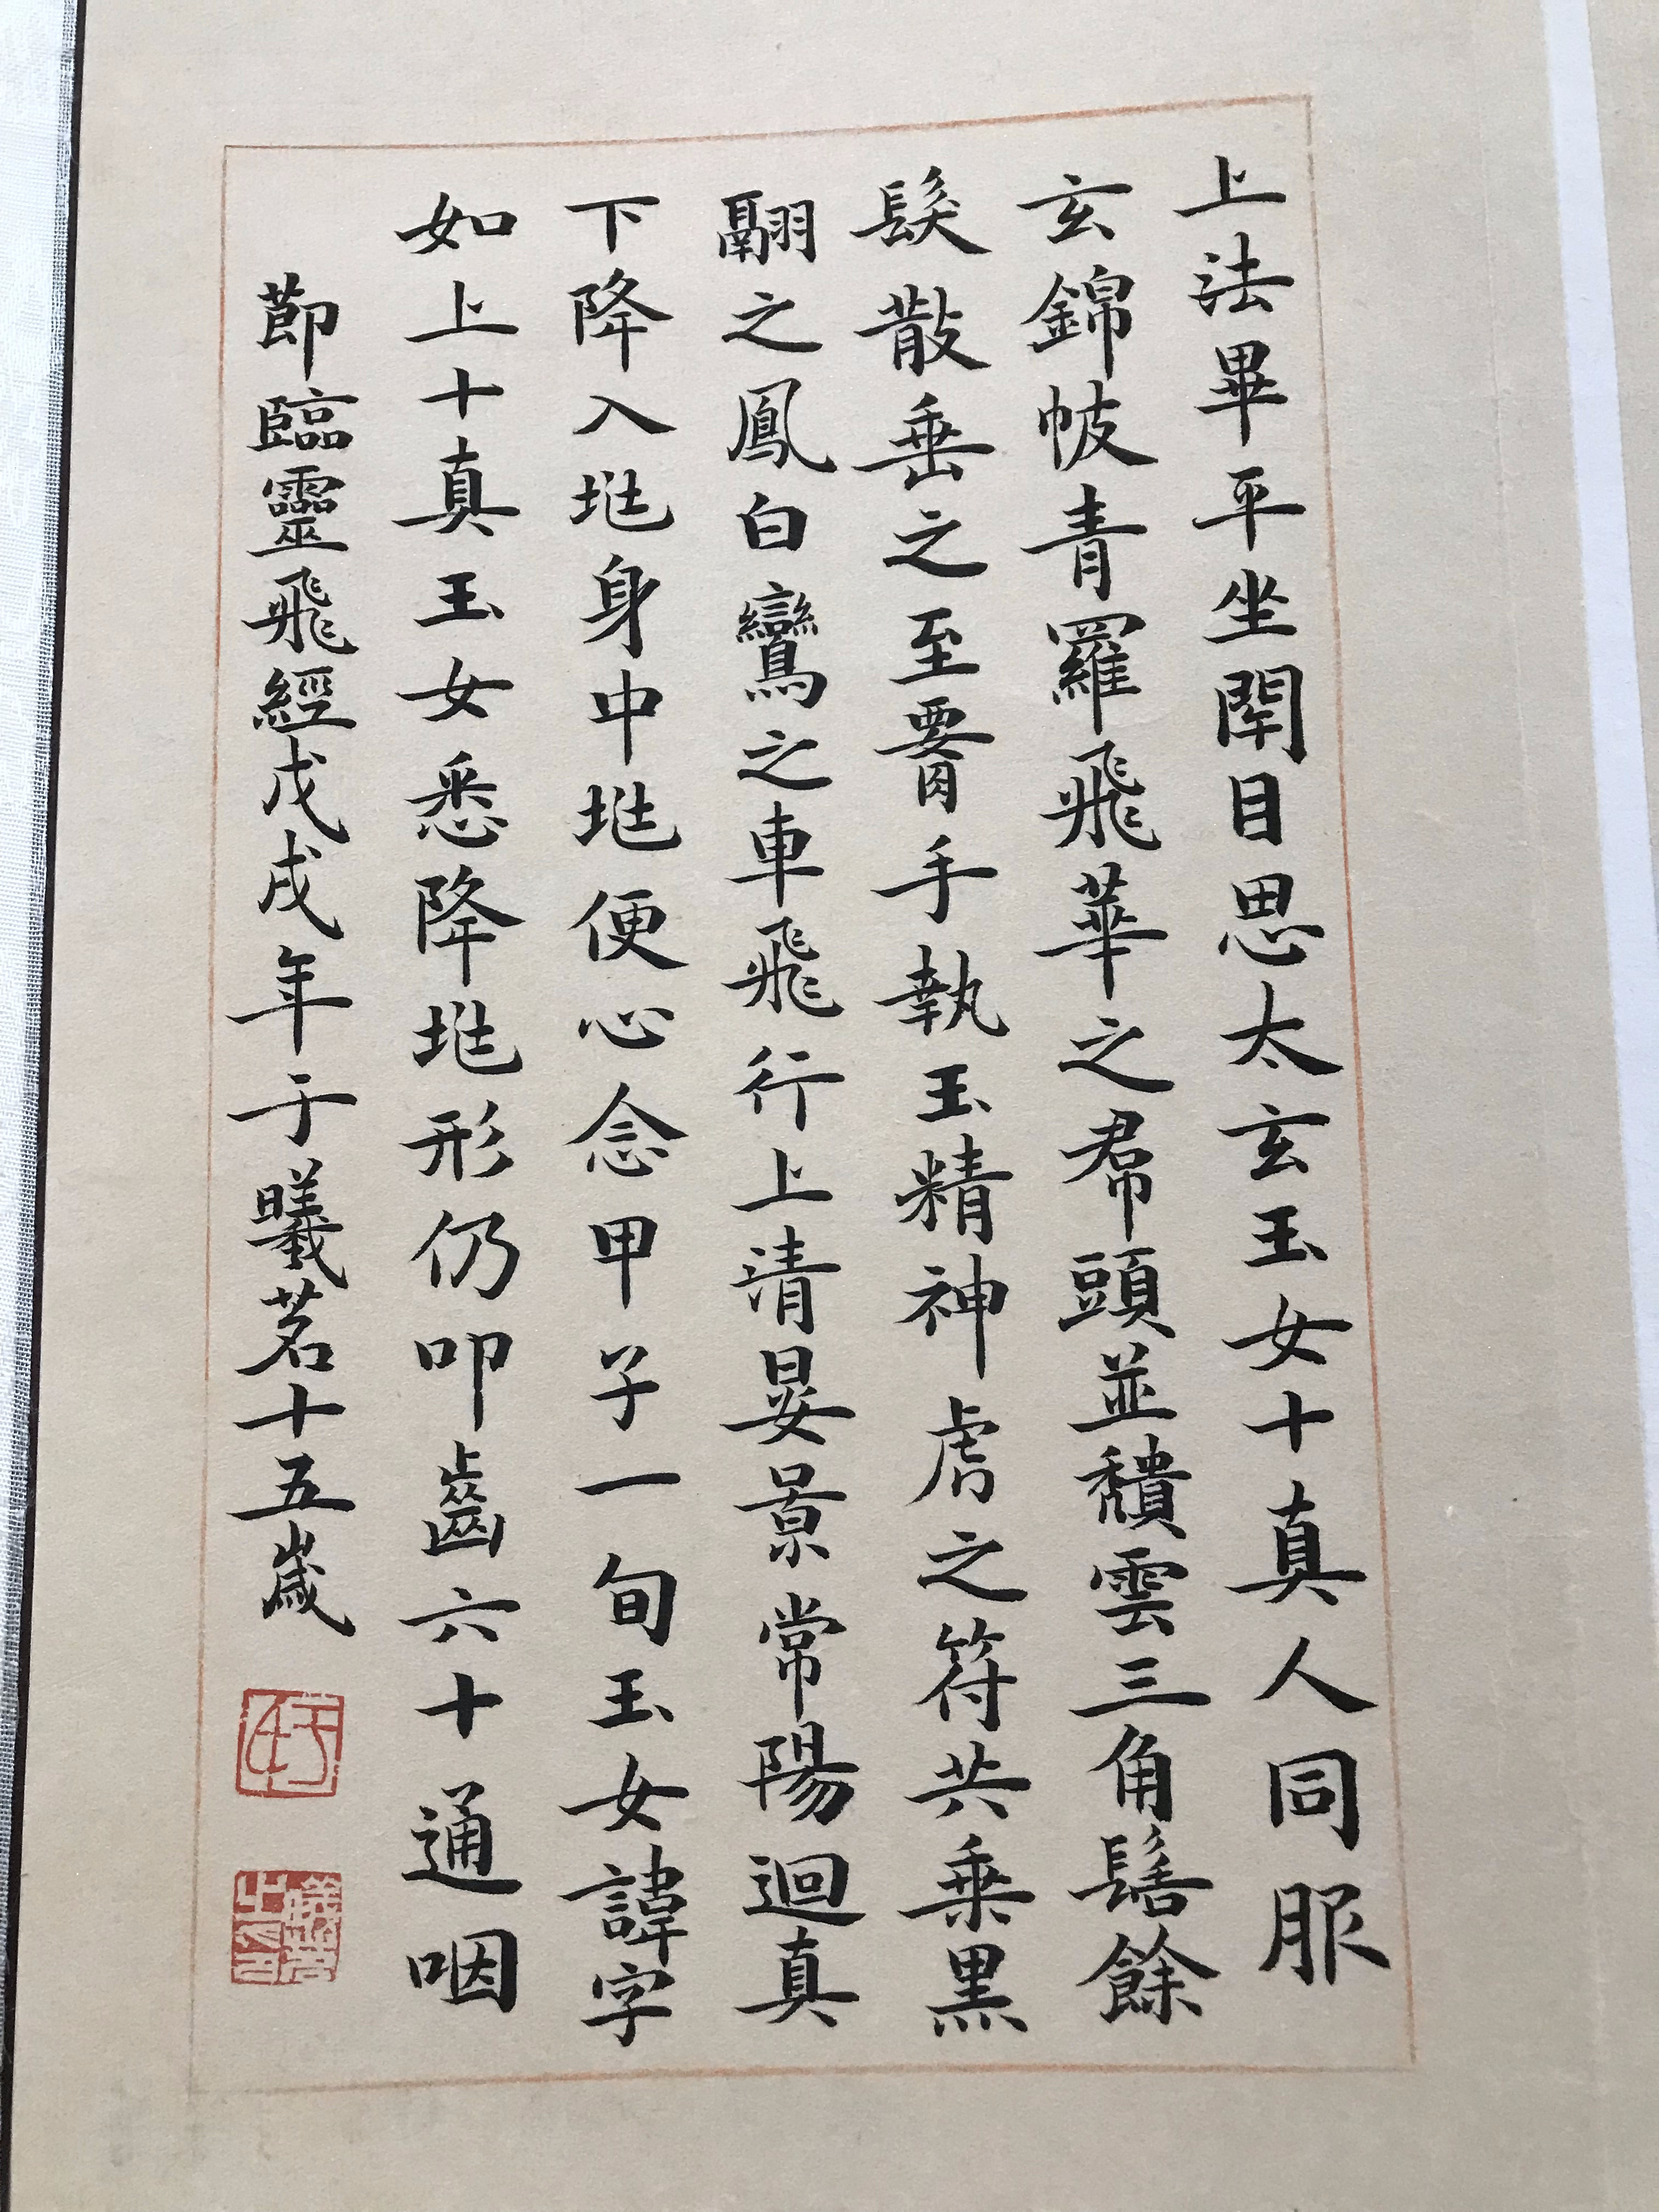 上法畢平坐閉目思太玄玉女十真人同服
玄錦帔青羅飛華之帬頭並穨雲三角髻餘
髮散垂之至𦝫手執玉精神虎之符共乗黑
翮之鳳白鸞之車飛行上清晏景常陽迴真
下降入𡊏身中𡊏便心念甲子一旬玉女諱字
如上十真玉女悉降𡊏形仍叩齒六十通咽
節臨靈飛經戊戌年于曦茗十五歲